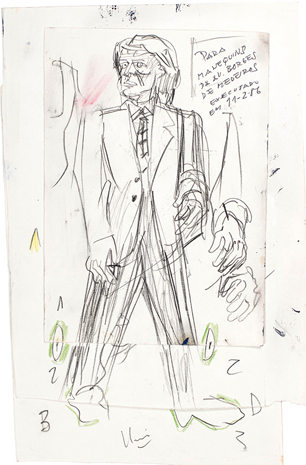 PARA
MANEQUINS
DE AV. BORGES
DE MEDEIROS
EXECUTADO
EM 11-2-86
1
2
2
B
D
3